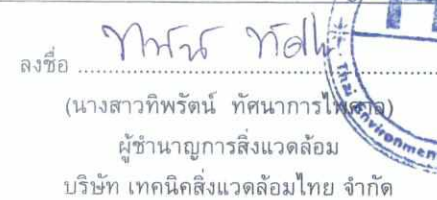 ลงชื่อ
(นางสาวทิพรัตน์ ทัศนาการไพศาล)
ผู้ชำนาญการสิ่งแวดล้อม
บริษัท เทคนิคสิ่งแวดล้อมไทย จำกัด
Thai Environmen